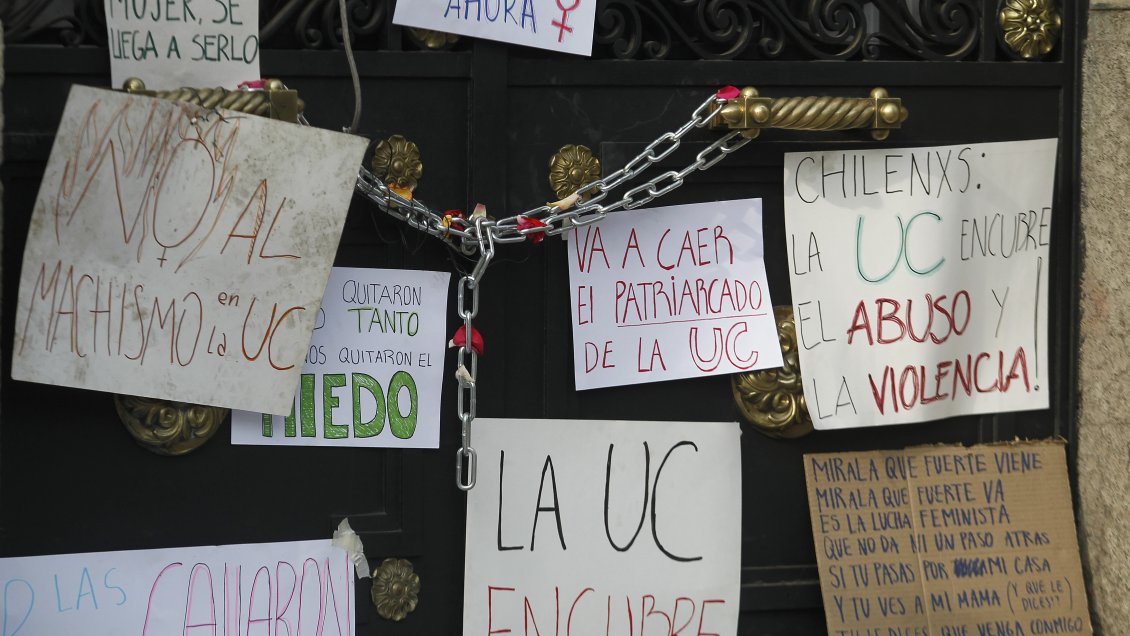 MUJER, SE
LLEGA A SERLO
AHORA
NO AL
MACHISMO en
la UC
QUITARON
TANTO
NOS QUITARON EL
MIEDO
VA A CAER
El PATRIARCADO
DE LA UC
CHILENXS:
LA UC ENCUBRE
EL ABUSO Y
LA VIOLENCIA!
LA UC
ENCUBRE
LAS CALLARON
MIRALA QUE FUERTE VIENE
MIRALA QUE FUERTE VA
ES LA LUCHA FEMINISTA
QUE NO DA NI UN PASO ATRAS
SI TU PASAS POR MI CASA
Y TU VES A MI MAMA (Y QUE LE
DICES?)
TU LE DICES QUE VENGA CONMIGO